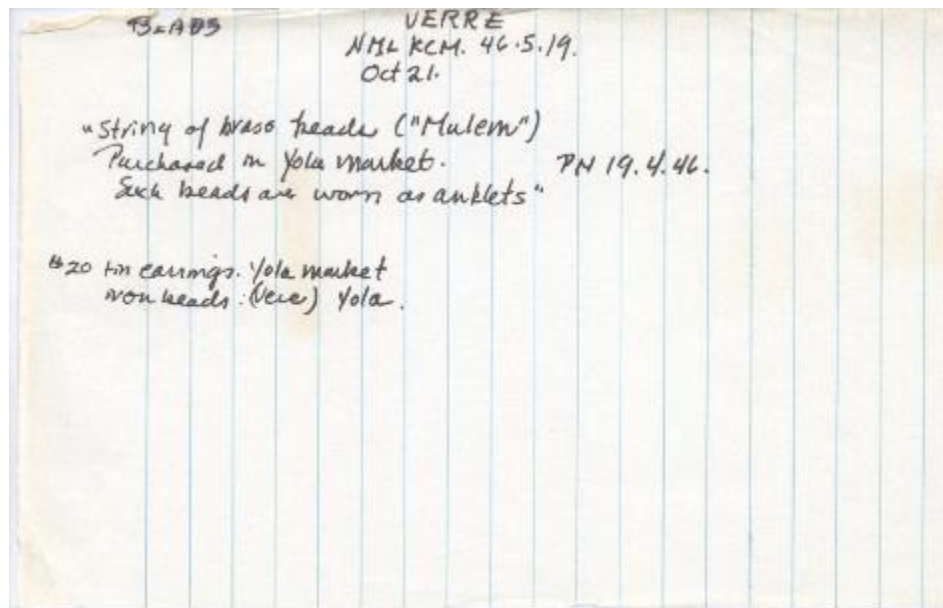 BEADS
VERRE
NML KCM. 46.5.19.
Oct 21.
"String of brass beads ("Mulem")
Purchased in Yola market. PN 19.4.46.
Such beads are worn as anklets"
#20 tin earrings. Yola market
iron beads: (Vere) Yola.